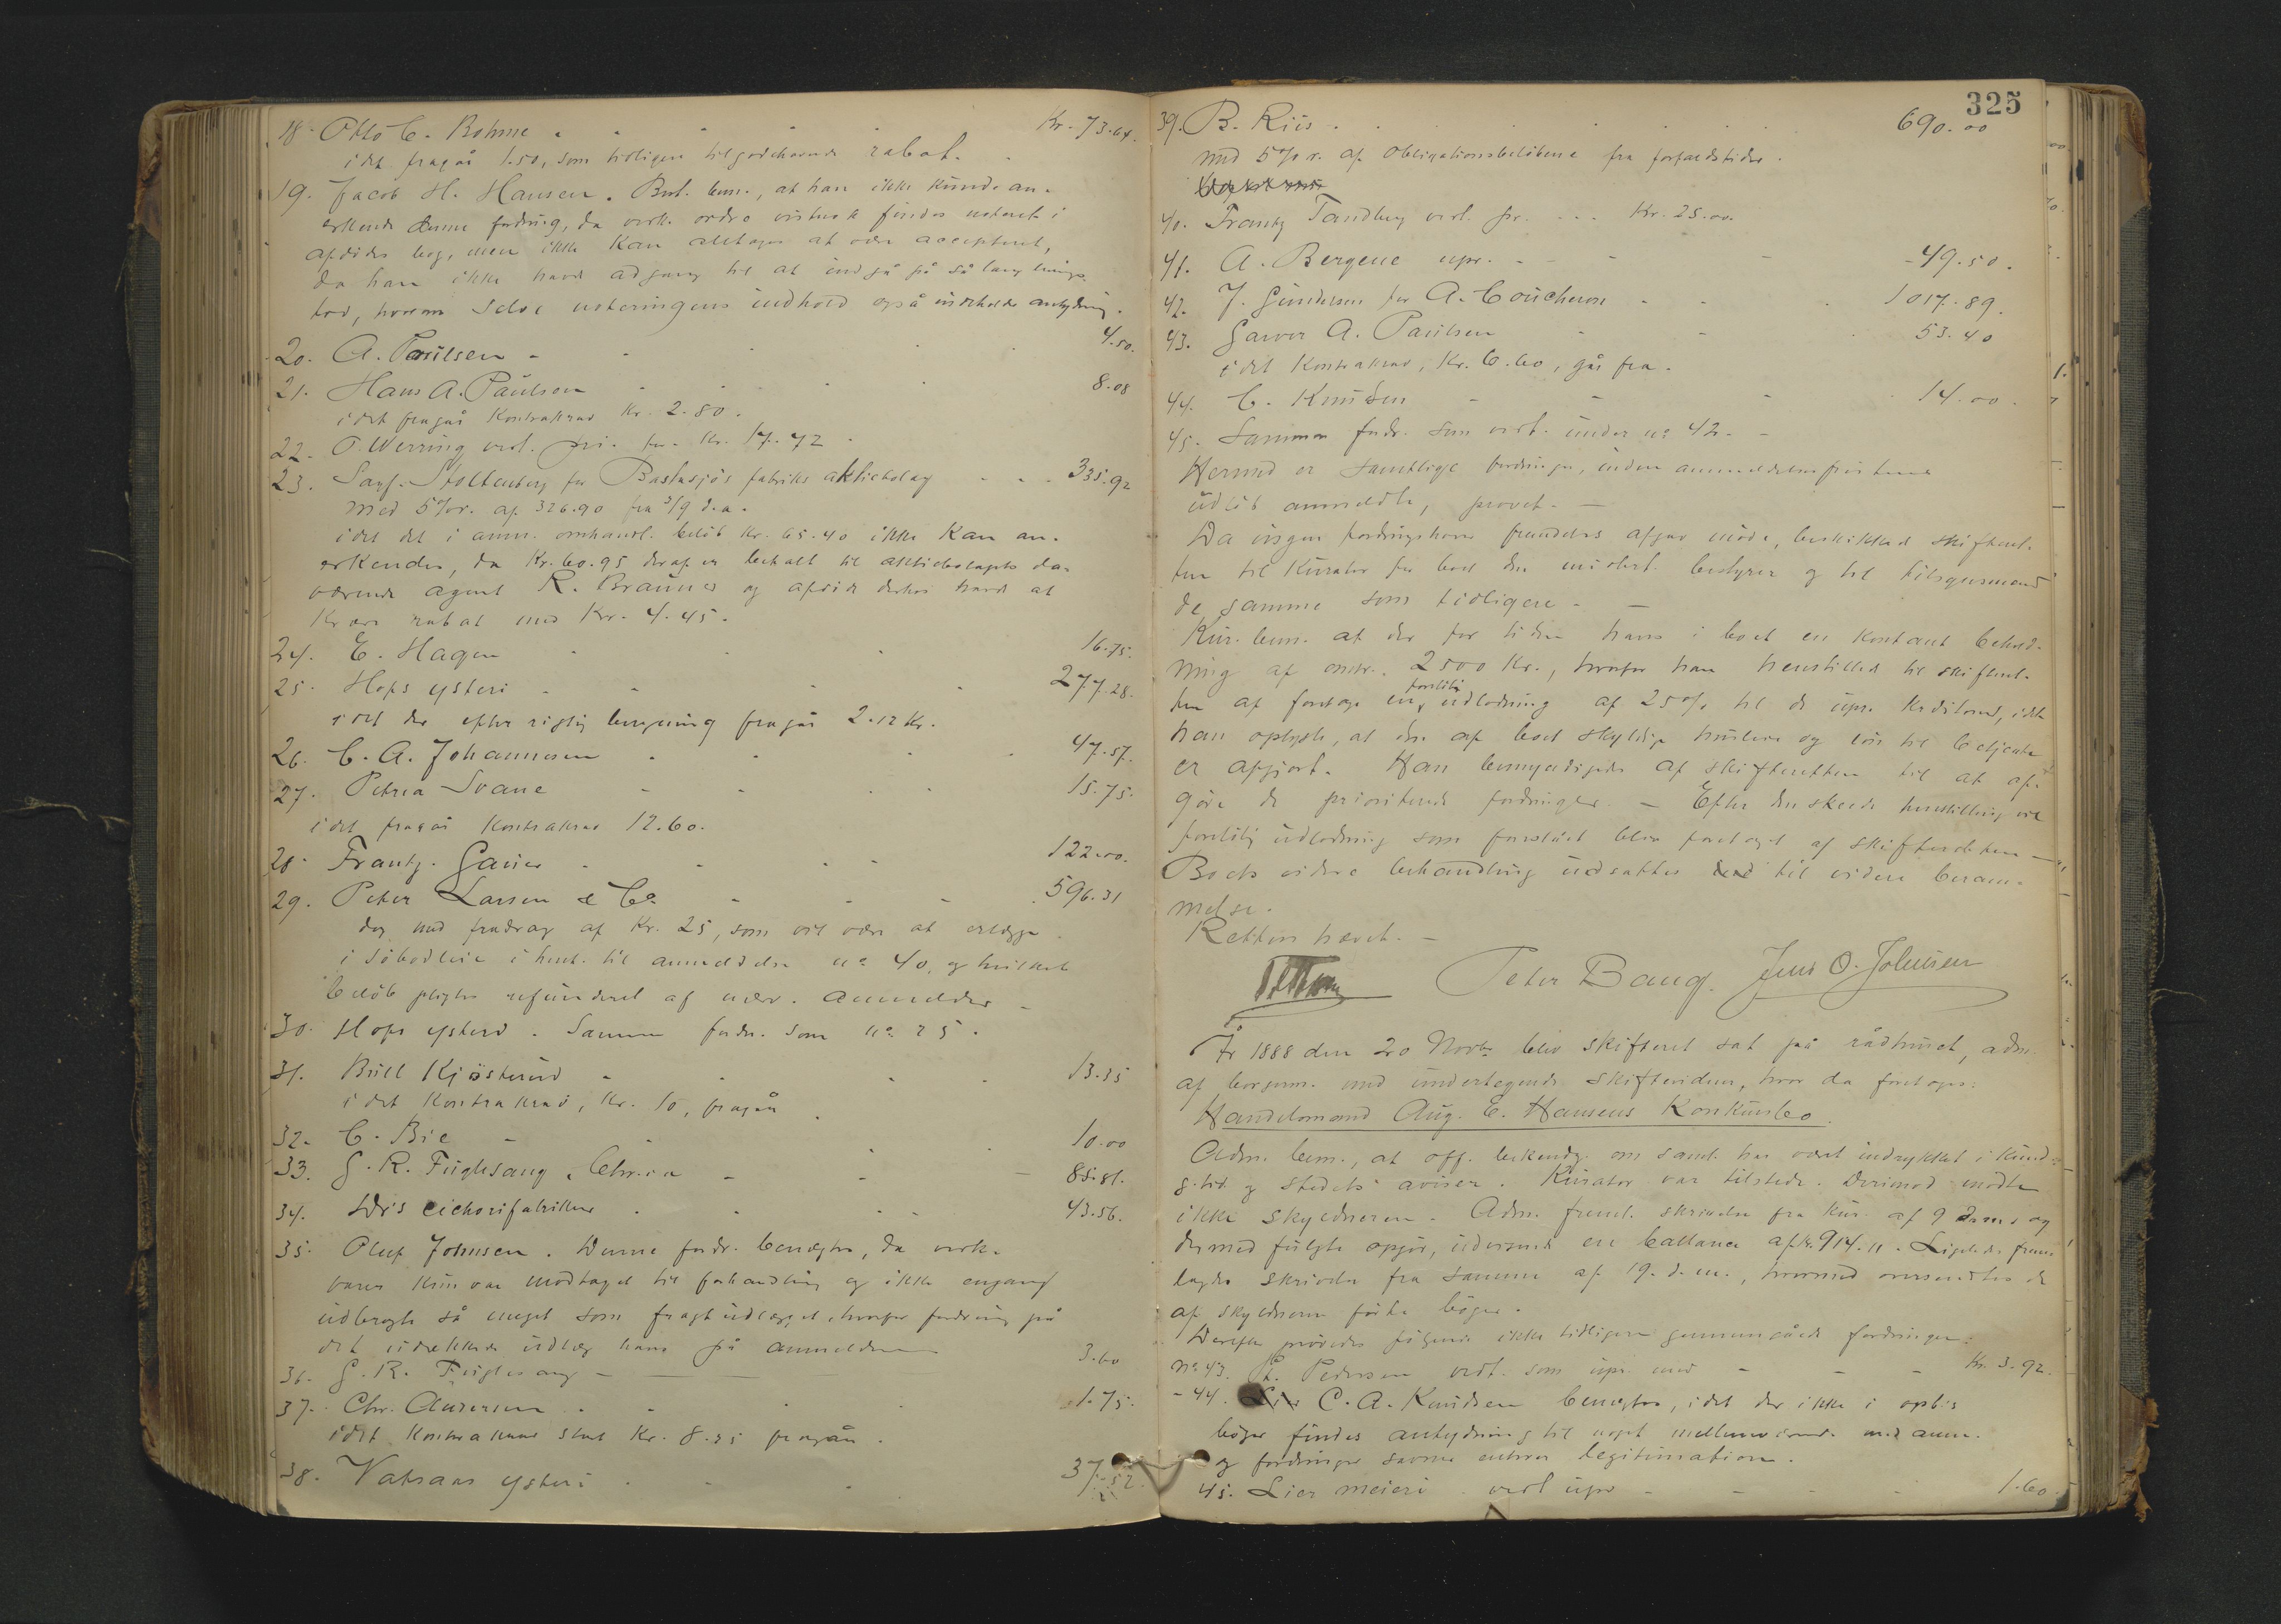 18. Otto C. Bohme . . . . . Kr. 73.64.
idet fragår 1.50, som tidligere tilgodehavende rabat.
19. Jacob H. Hansen. Best. bem., at han ikke kunde an-
erkjende denne fordring, da ordre findes noteret i
afdødes bog, men ikke kan antages at være accepteret,
da han ikke havde adgang til at indgå på så lang
tid, hvorom selve noteringens indhold også indeholder antydning.
20. A. Paulsen - 4.50.
21. Hans A. Paulsen 8.08
idet fragår Kontrakrav Kr. 2.80.
22. O. Werring verl. pri. for Kr. 17.72
23. Sagf. Stoltenberg for Bastusjös fabriks aktiebolag - - - 335.92
med 5% r. af 326.90 fra 3/9 d.a.
idet det i anm. omhandl. beløb Kr. 65.40 ikke kan an-
erkendes, da Kr. 60.95 deraf er betalt til aktiebolagets da-
værende agent R. Brauner og afdøde derhos havde at
kræve rabat med Kr. 4.45.
24. E. Hagen 16.75.
25. Hofs ysteri - 277.28.
idet der efter rigtig beregning fragår 2.12 Kr.
26. C. A. Johannesen 47.57.
27. Petrea Svane 15.75.
idet fragår Kontrakrav 12.60.
28. Frantz. Garver 122.00.
29. Peter Larsen & Co. 596.31
dog med fradrag af Kr. 25, som vil være at erlægge
i søbodleie i henh. til anmeldelse no 40, og hvilket
beløb pligtes refunderet af nærv. anmelder -
30. Hofs ysteri. Samme fordr. som no 25.
31. Brill Kjösterud - 13.35
idet Kontrakrav, Kr. 10, fragår
32. C. Bie - 10.00
33. G. R. Fuglesang, Chr.ia - 85.81.
34. W's cichorifabrikker 43.56.
35. Oluf Johnsen. Denne fordr. benægtes, da
varen kun var modtaget til forhandling og ikke engang
udbragte så meget som fragtudlægget, hvorfor fordring på
det udækkede udlæg haves på anmelderen
36. G. R. Fuglesang - 3.60
37. Chr. Andersen 1.75.
idet Kontrakrav stort Kr. 8.25 fragår.
38. Vatsaas ysteri 37.52.
325
39. B. Riis . . . 690.00
med 5% r. af obligationsbeløbene fra forfaldstiden.
40. Frantz Tandberg verl. pr. - - - Kr. 25.00.
41. A. Bergene upr. - - 49.50.
42. J. Gundersen for A. Coucheron - 1017.89.
43. Garver A. Paulsen 53.40
idet Kontrakrav, Kr. 6.60, går fra.
44. C. Knudsen - 14.00.
45. Samme fordr. som verl. under no 42. -
Hermed er samtlige fordringer, inden anmeldelsesfristens
udløb anmeldte, prøvet. -
Da ingen fordringshaver fremdeles afgav møde, beskikked skifteret-
ten til kurator for boet den midlert. bestyrer og til tilsynsmænd
de samme som tidligere. -
Kur. bem. at der for tiden haves i boet en kontant behold-
ning af omtr. 2500 Kr., hvorfor han henstilled til skifteret-
ten at foretage en foreløbig udlodning af 25% til de upr. kreditorer, idet
han oplyste, at den af boet skyldige husleie og løn til betjente
er opgjort. Han bemyndigedes af skifteretten til at af-
gøre de prioriterede fordringer. - Efter den skede henstilling vil
foreløbig udlodning som foreslået blive foretaget af skifteretten -
Boets videre behandling udsattes til videre beram-
melse.
Retten hævet. -
Peter Bang. Jens O. Johnsen
År 1888 den 20 Novbr. blev skifteret sat på rådhuset, adm.
af borgerm. med undertegnede skiftevidner, hvor da foretoges:
Handelsmand Aug. E. Hansens Konkursbo.
Adm. bem., at off. bekendtg. om saml. har været indrykket i Kund-
g.tid. og stedets aviser. Kurator var tilstede. Derimod mødte
ikke skyldneren. Adm. freml. skrivelse fra kur. af 9 dennes og
dermed fulgte opgør, udvisende en ballance af kr. 914.11. Ligeledes frem-
lagdes skrivelse fra samme af 19. d.m., hvormed oversendtes de
af skyldneren førte bøger.
Derefter prøvedes følgende ikke tidligere gennemgåede fordringer:
No 43. P. Pedersen vedt. som upr. med - - - Kr. 3.92.
- 44. C. A. Knudsen benægtes, idet der ikke i opb.s
bøger findes antydning til noget mellemværende med anm.
og fordringen savner enhver legitimation.
45. Lier meieri vedt upr - - 1.60.